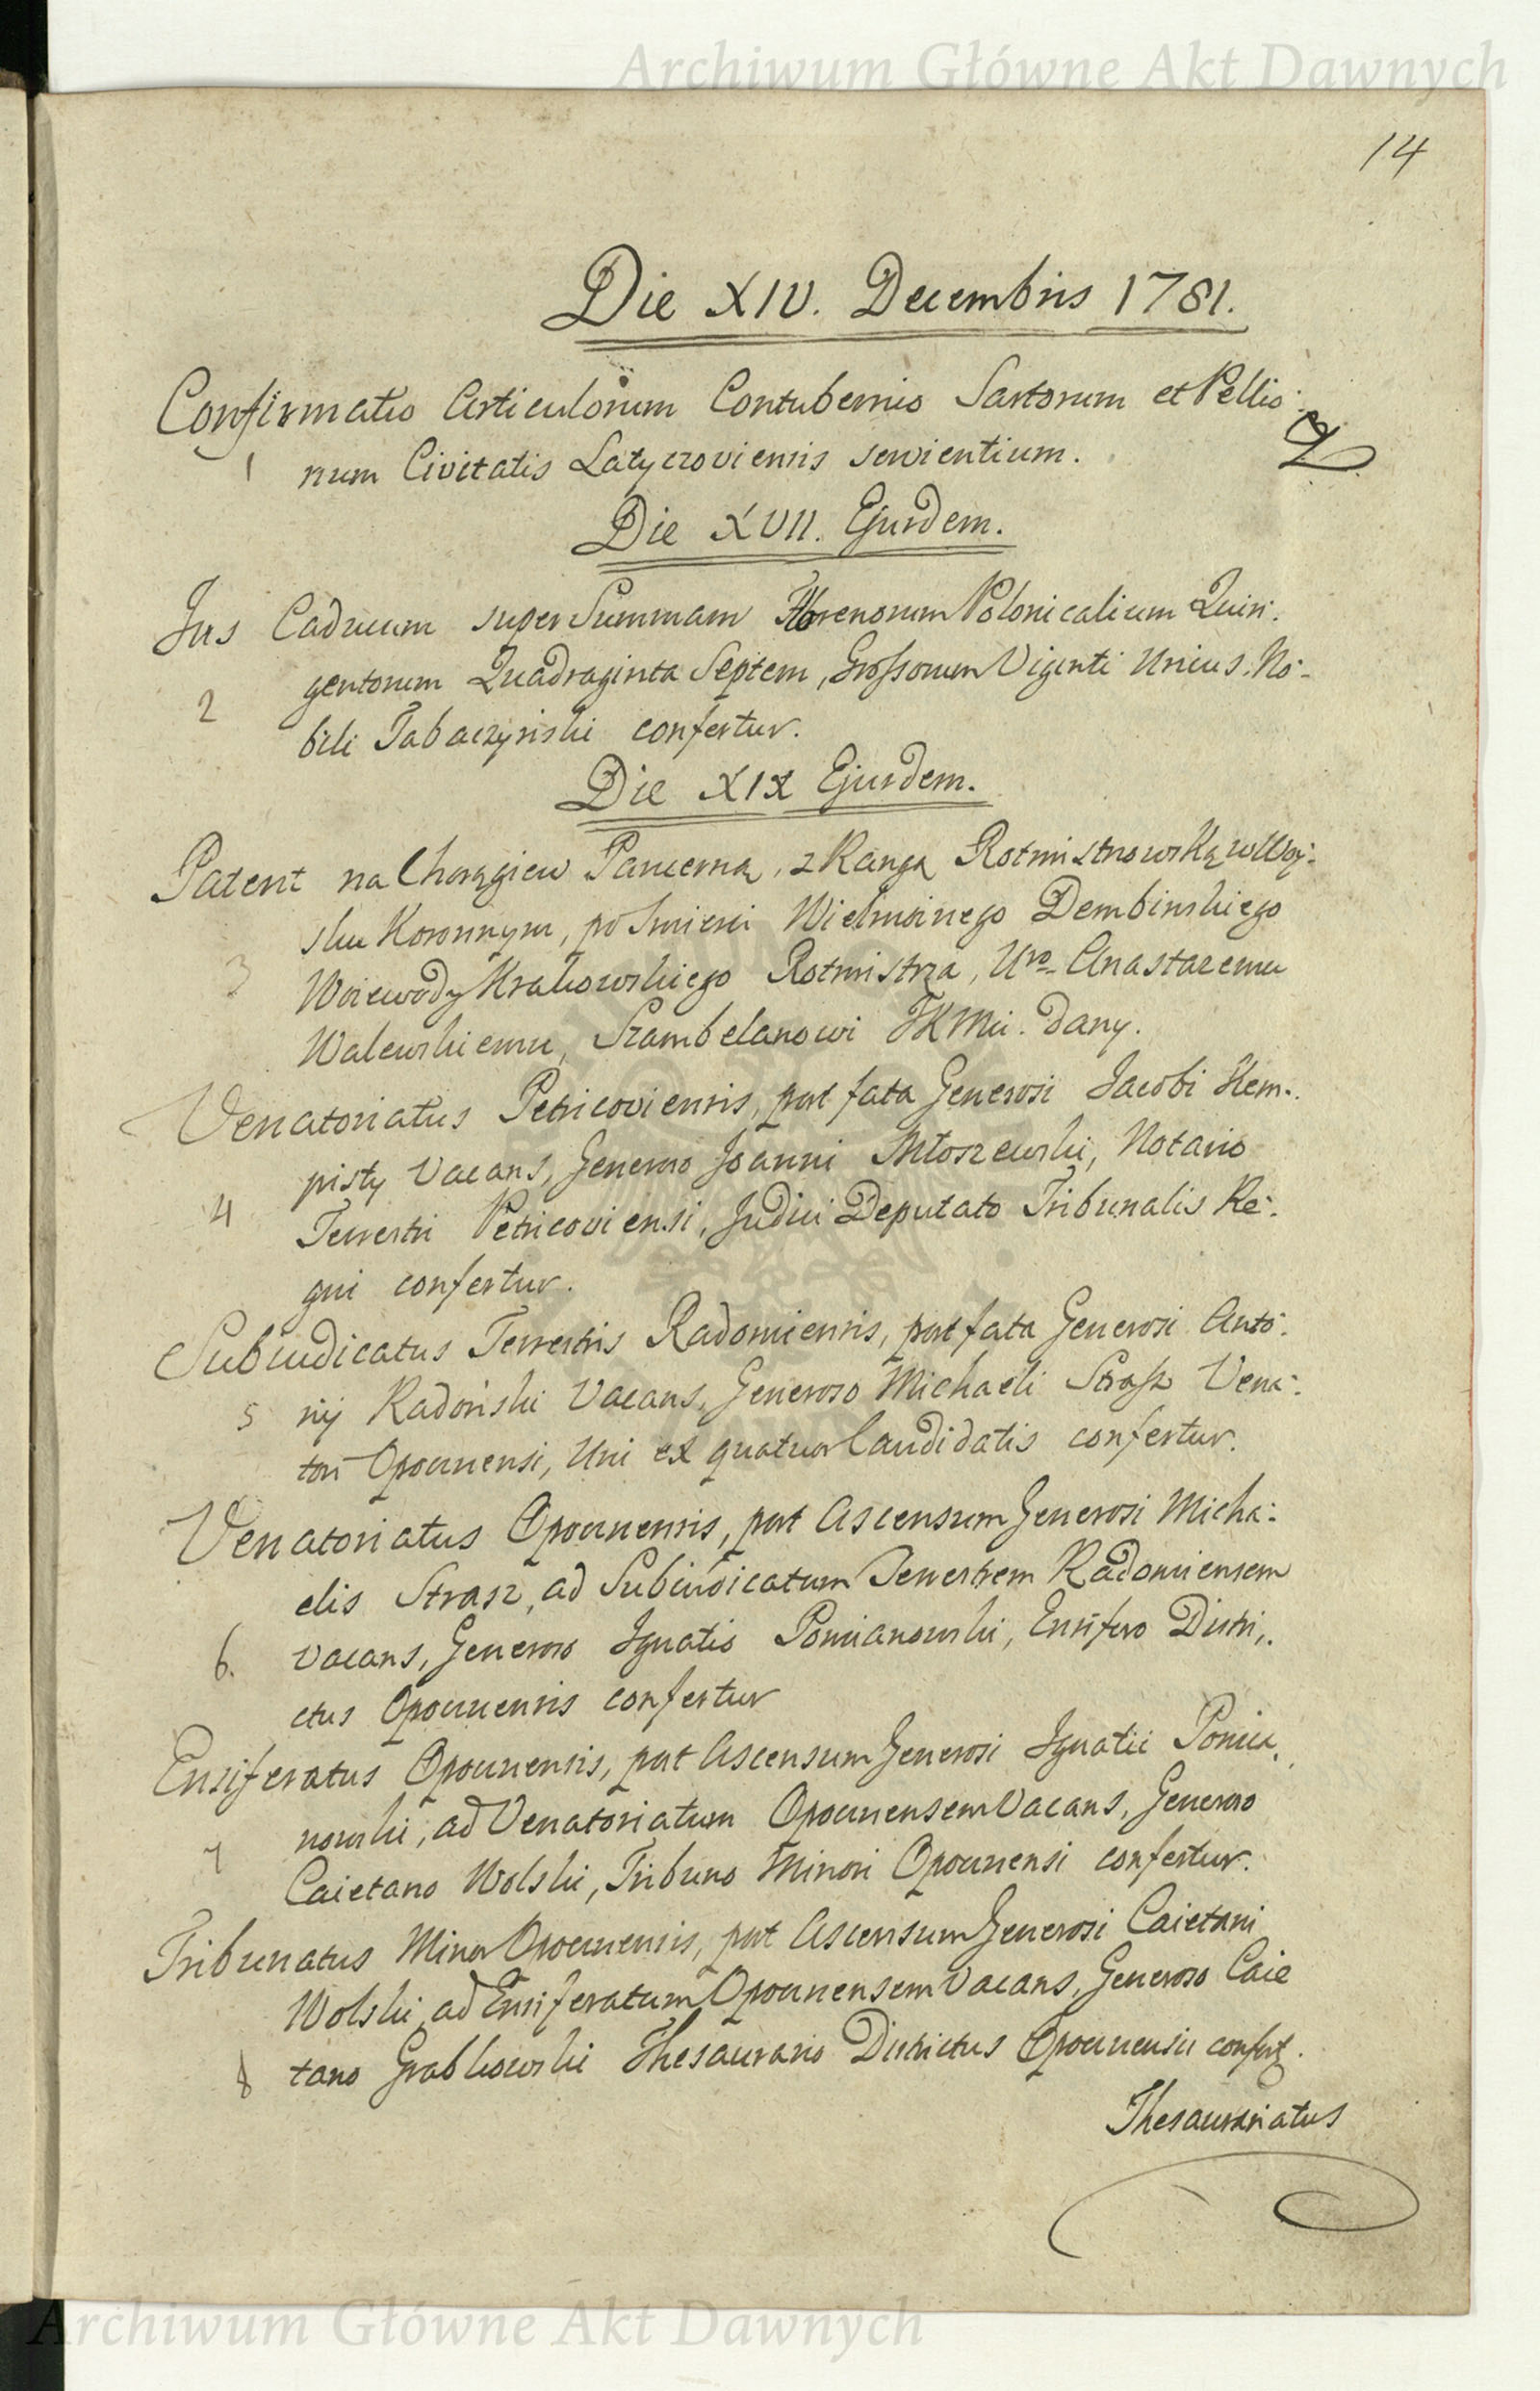 Archiwum Główne Akt Dawnych
14
Die XIV. Decembris 1781.
Confirmatio Articulorum Contubernio Sartorum et Pellio:
1 num Civitatis Latyczoviensis servientium.
Die XVII. Ejusdem.
Jus Caducum super Summam Florenorum Polonicalium Quin:
gentorum Quadraginta Septem, Grossorum Viginti Unius. No:
2
bili Tabaczyński confertur.
Die XIX Ejusdem.
Patent na Chorągiew Pancerną, z Rangą Rotmistrzowską w Woy:
sku Koronnym, po Smierci Wielmożnego Dembinskiego
3
Woiewody Krakowskiego Rotmistrza, Uro. Anastazemu
Walewskiemu, Szambelanowi JKMci. dany.
Venatoriatus Petricoviensis, post fata Generosi Jacobi Kem:
pisty Vacans, Generoso Joanni Młoszewski, Notario
4
Terrestri Petricoviensi, Judici Deputato Tribunalis Re:
gni confertur.
Subiudicatus Terrestris Radomiensis, post fata Generosi Anto:
5 nij Radoński Vacans, Generoso Michaeli Strasz Vena:
tori Opocznensi, Uni ex quatuor Candidatis confertur.
Venatoriatus Opocznensis, post Ascensum Generosi Micha:
elis Strasz, ad Subiudicatum Terrestrem Radomiensem
6. vacans, Generoso Ignatio Pomianowski, Ensifero Distri:
ctus Opocznensis confertur
Ensiferatus Opocznensis, post Ascensum Generosi Ignatii Pomia
nowski, ad Venatoriatum Opocznensem Vacans, Generoso
7
Caietano Wolski, Tribuno Minori Opocznensi confertur.
Tribunatus Minor Opocznensis, post Ascensum Generosi Caietani
Wolski ad Ensiferatum Opocznensem Vacans, Generoso Caie
8 tano Grabkowski Thesaurario Districtus Opocznensis confert.
Thesaurariatus
Archiwum Główne Akt Dawnych